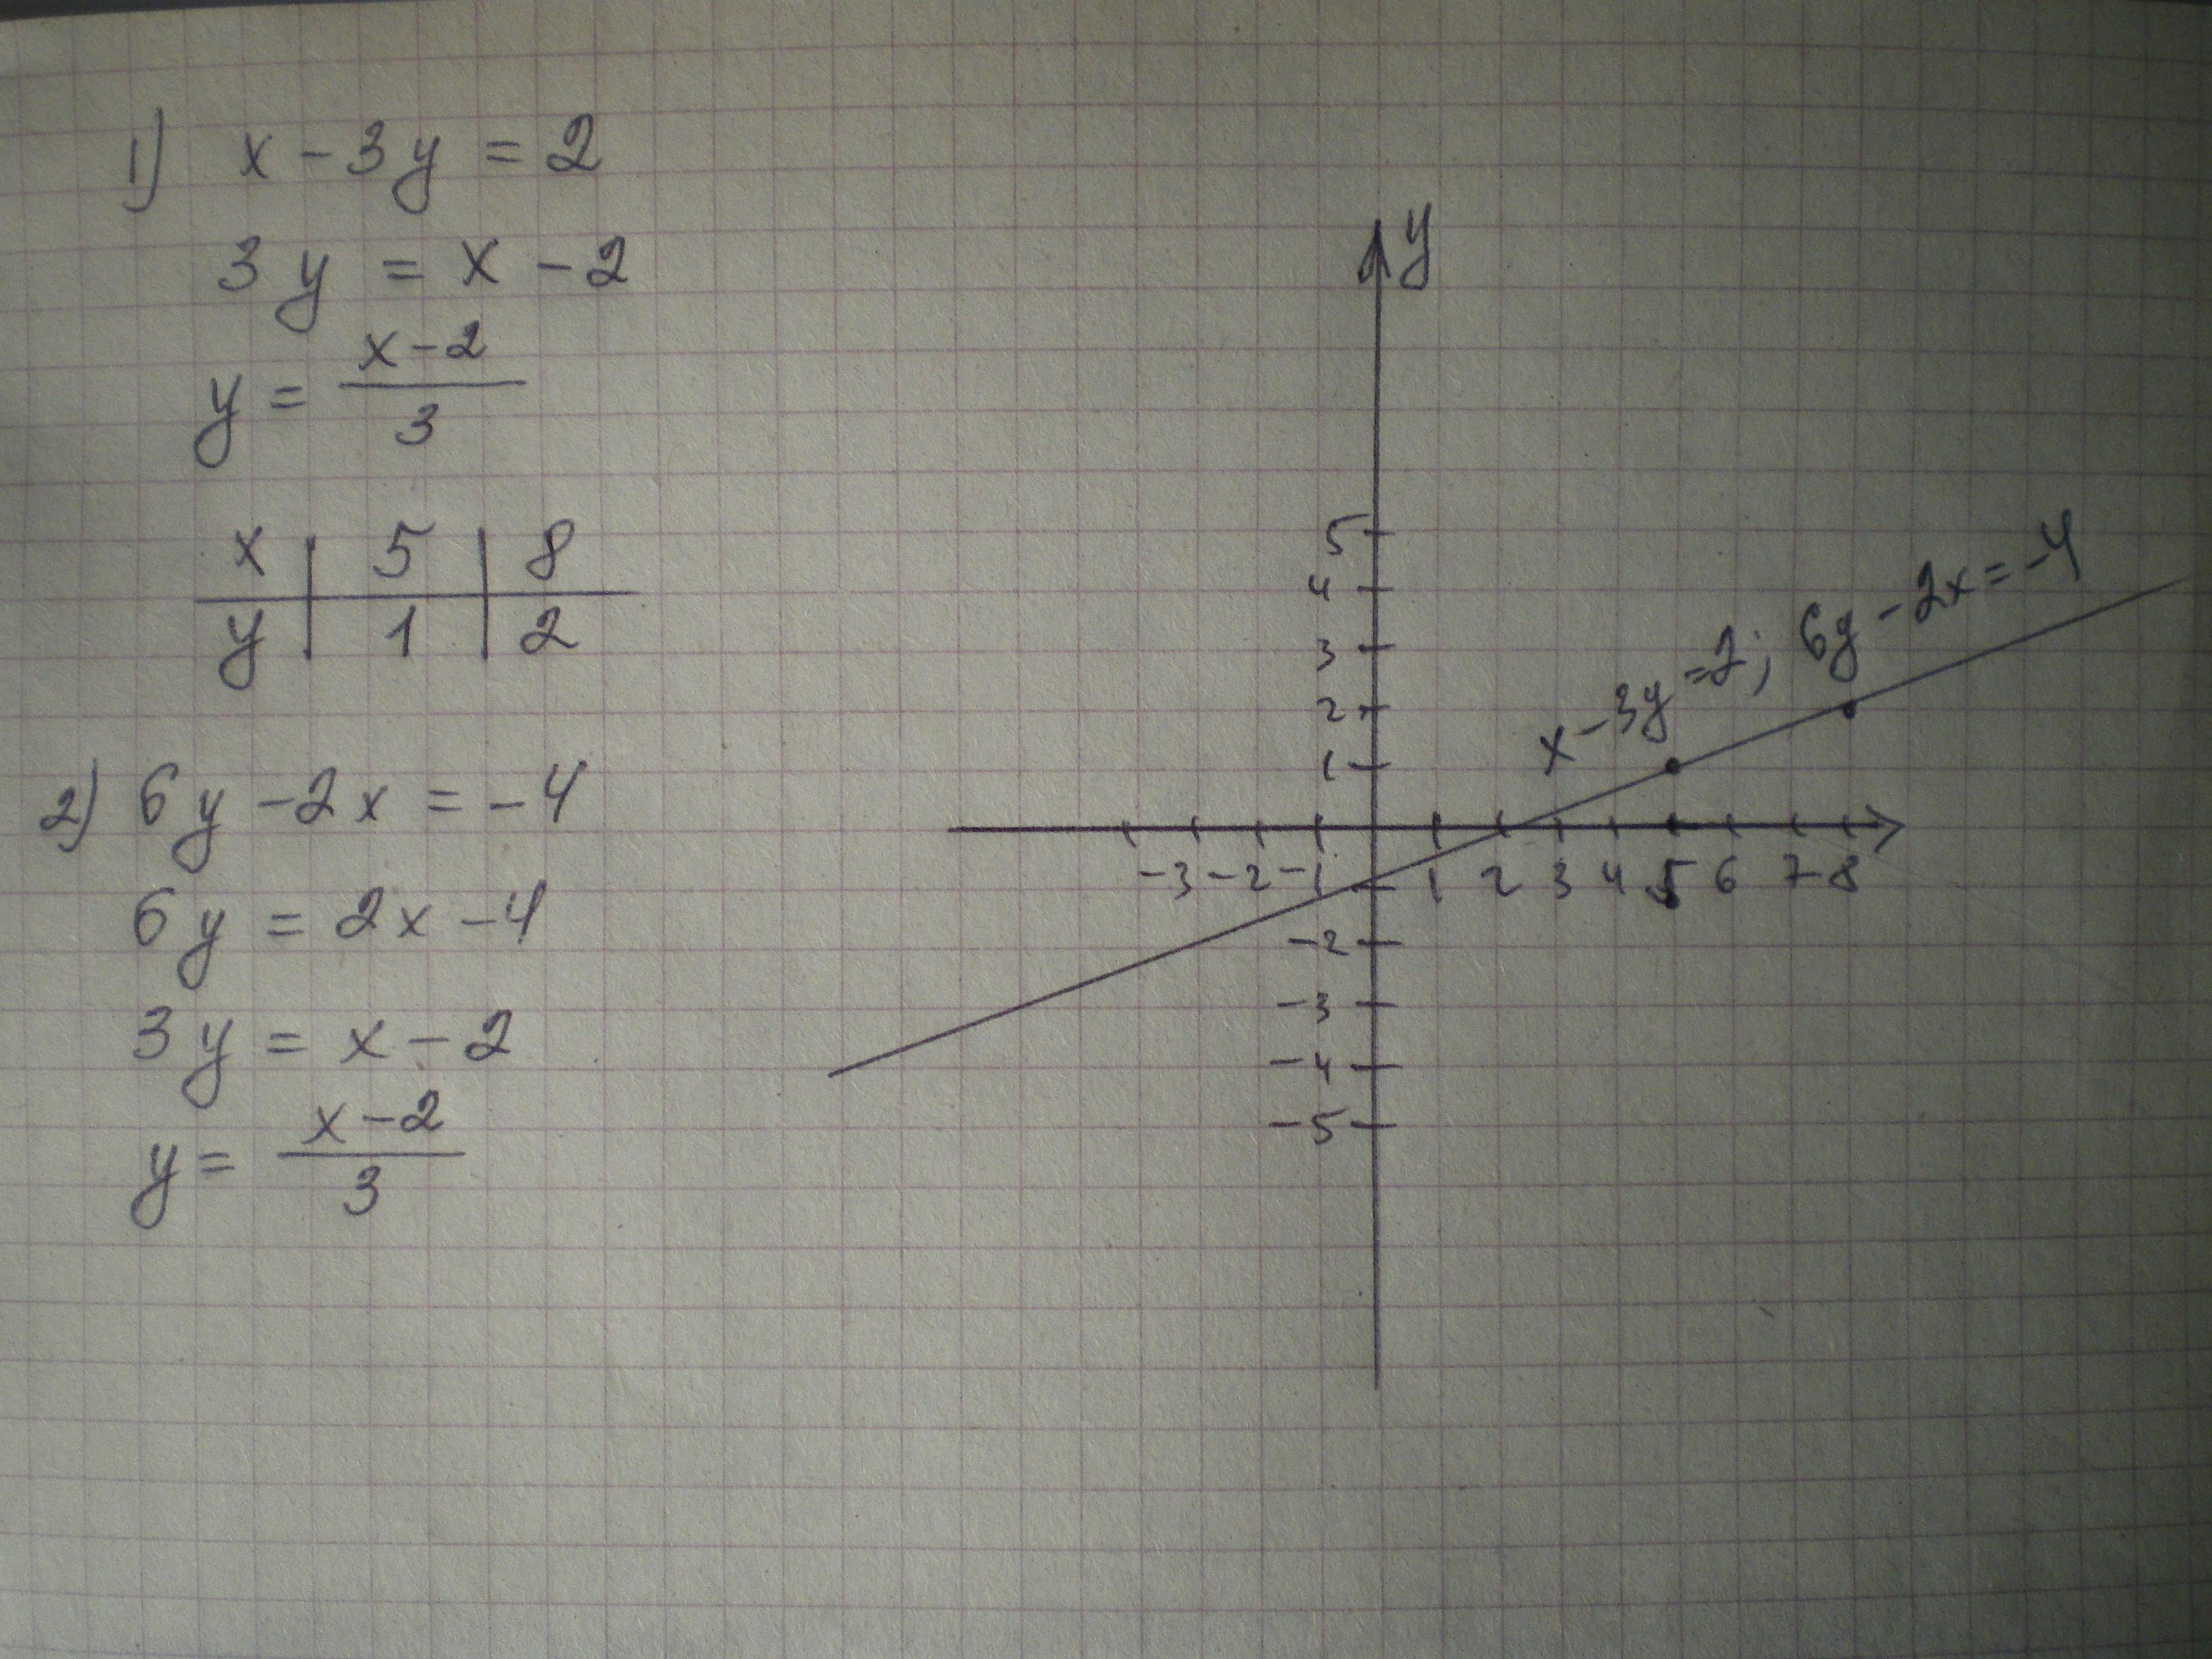 1) x - 3y = 2
3y = x - 2
y = (x-2)/3
x | 5 | 8
y | 1 | 2
2) 6y - 2x = -4
6y = 2x - 4
3y = x - 2
y = (x-2)/3
y
5
4
3
2
1
x - 3y = 2; 6y - 2x = -4
-3 -2 -1 1 2 3 4 5 6 7 8
-2
-3
-4
-5